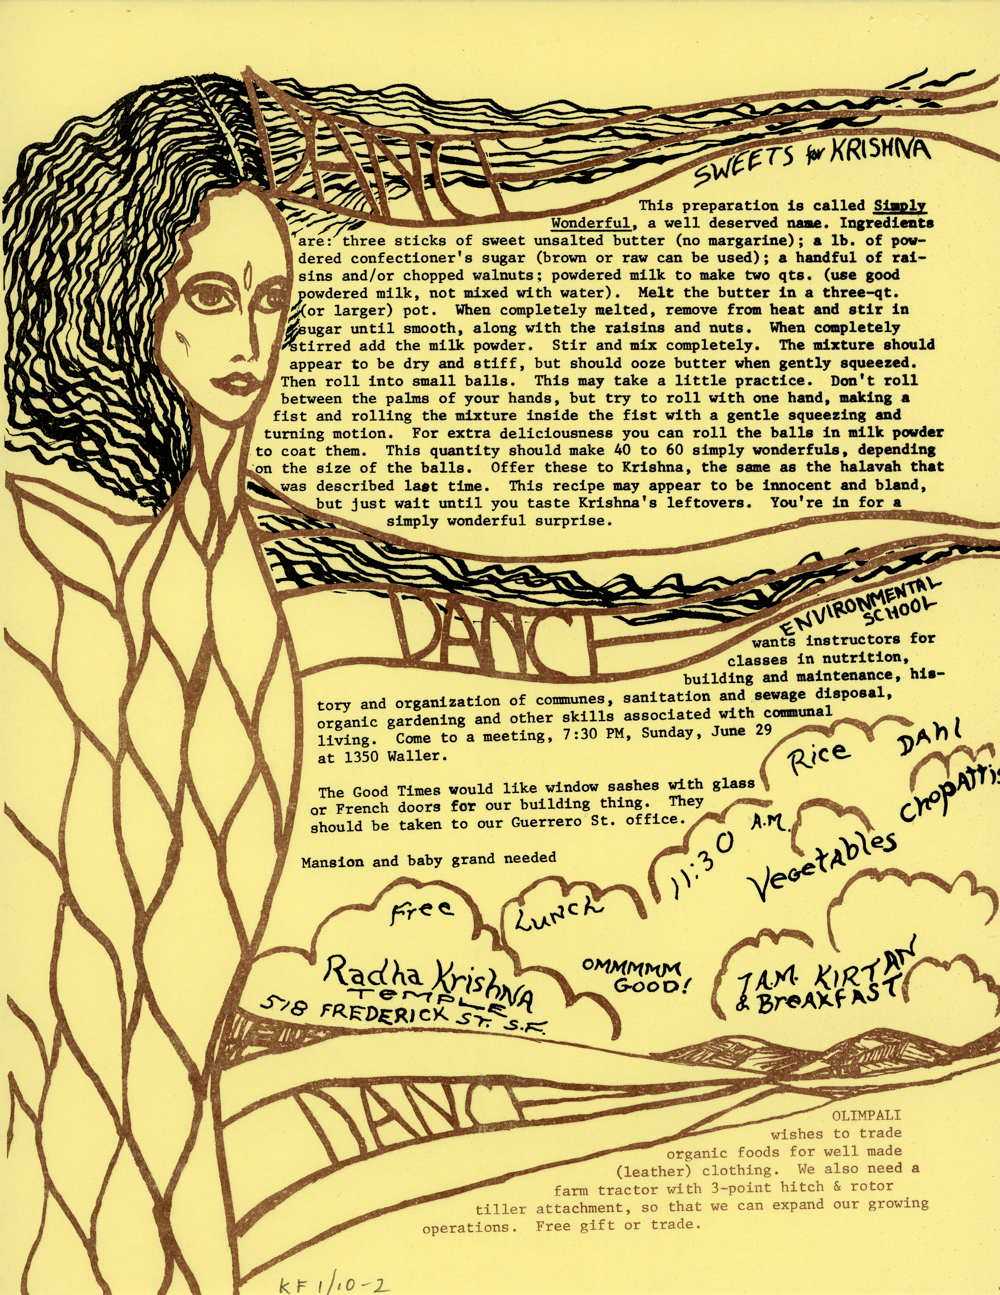 DANCE
SWEETS for KRISHNA
This preparation is called Simply
Wonderful, a well deserved name. Ingredients
are: three sticks of sweet unsalted butter (no margarine); a lb. of pow-
dered confectioner's sugar (brown or raw can be used); a handful of rai-
sins and/or chopped walnuts; powdered milk to make two qts. (use good
powdered milk, not mixed with water). Melt the butter in a three-qt.
(or larger) pot. When completely melted, remove from heat and stir in
sugar until smooth, along with the raisins and nuts. When completely
stirred add the milk powder. Stir and mix completely. The mixture should
appear to be dry and stiff, but should ooze butter when gently squeezed.
Then roll into small balls. This may take a little practice. Don't roll
between the palms of your hands, but try to roll with one hand, making a
fist and rolling the mixture inside the fist with a gentle squeezing and
turning motion. For extra deliciousness you can roll the balls in milk powder
to coat them. This quantity should make 40 to 60 simply wonderfuls, depending
on the size of the balls. Offer these to Krishna, the same as the halavah that
was described last time. This recipe may appear to be innocent and bland,
but just wait until you taste Krishna's leftovers. You're in for a
simply wonderful surprise.
DANCE
ENVIRONMENTAL
SCHOOL
wants instructors for
classes in nutrition,
building and maintenance, his-
tory and organization of communes, sanitation and sewage disposal,
organic gardening and other skills associated with communal
living. Come to a meeting, 7:30 PM, Sunday, June 29
at 1350 Waller.
The Good Times would like window sashes with glass
or French doors for our building thing. They
should be taken to our Guerrero St. office.
Mansion and baby grand needed
Free
Lunch
11:30 A.M.
Rice
Dahl
Chopattis
Vegetables
Radha Krishna
TEMPLE
518 FREDERICK ST. S.F.
OMMMMM
GOOD!
7A.M. KIRTAN
& BreAKFAST
DANCE
OLIMPALI
wishes to trade
organic foods for well made
(leather) clothing. We also need a
farm tractor with 3-point hitch & rotor
tiller attachment, so that we can expand our growing
operations. Free gift or trade.
KF 1/10-2